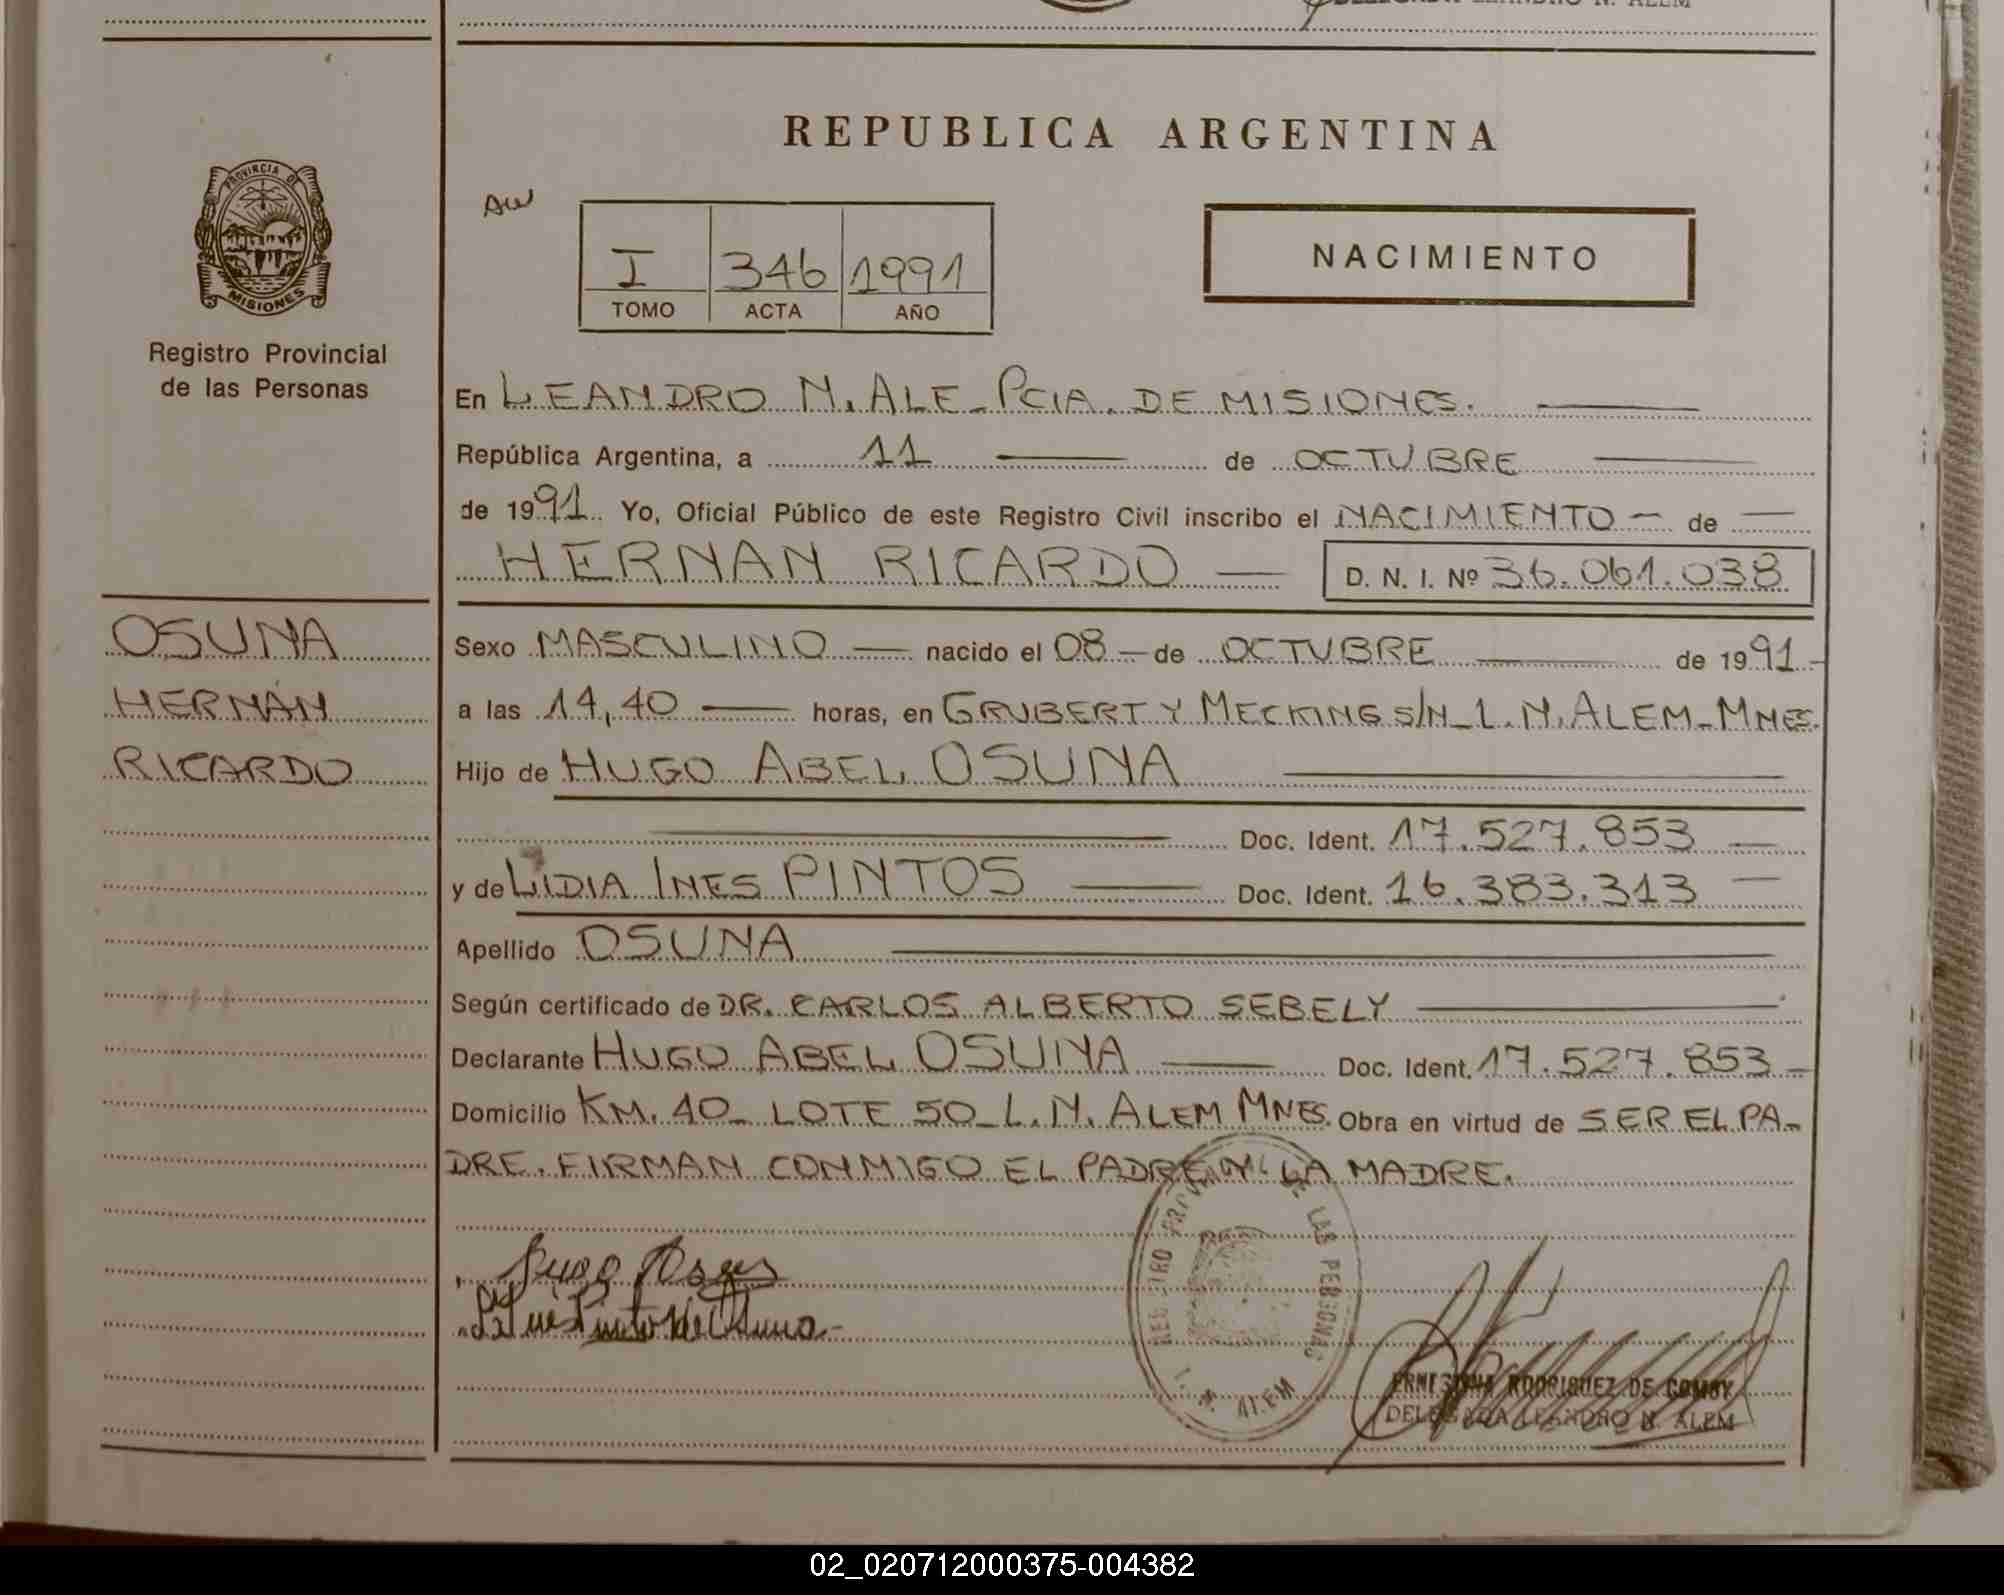 DELEGADA LEANDRO N. ALEM
REPUBLICA ARGENTINA
PROVINCIA DE
MISIONES
Registro Provincial
de las Personas
I 346 1991
TOMO ACTA AÑO
NACIMIENTO
En LEANDRO N. ALE_PCIA. DE MISIONES.
República Argentina, a 11 de OCTUBRE
de 1991. Yo, Oficial Público de este Registro Civil inscribo el NACIMIENTO - de
HERNAN RICARDO D. N. I. Nº 36.061.038
OSUNA
HERNÁN
RICARDO
Sexo MASCULINO nacido el 08 de OCTUBRE de 1991.-
a las 14,40 horas, en GRUBERT Y MECKING S/N_L.N.ALEM_MNES.
Hijo de HUGO ABEL OSUNA
Doc. Ident. 17.527.853
y de LIDIA INES PINTOS Doc. Ident. 16.383.313
Apellido OSUNA
Según certificado de DR. CARLOS ALBERTO SEBELY
Declarante HUGO ABEL OSUNA Doc. Ident. 17.527.853
Domicilio KM. 40_ LOTE 50_L.N. ALEM MNES. Obra en virtud de SER EL PA-
DRE. FIRMAN CONMIGO EL PADRE Y LA MADRE.
DE LAS PERSONAS
L. N. ALEM
RODRIGUEZ DE
DELEGADA LEANDRO N. ALEM
02_020712000375-004382